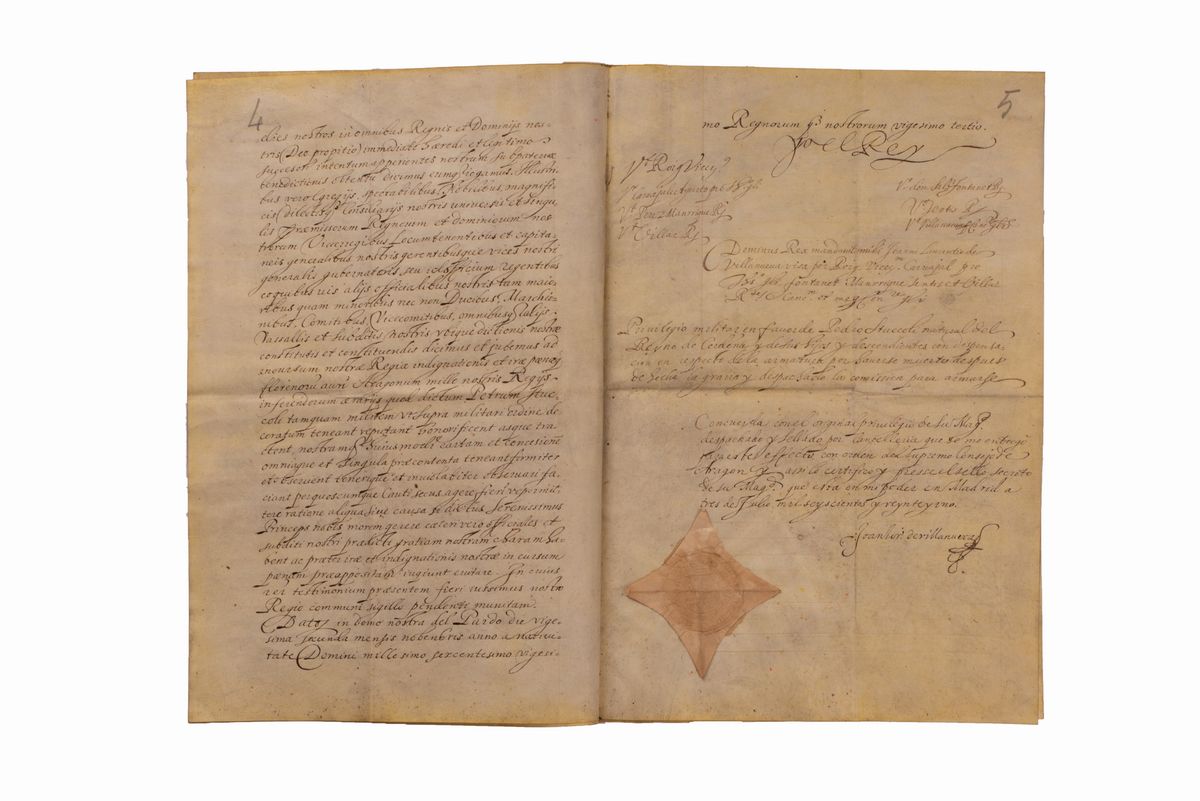 4
dies nostros in omnibus Regnis et Dominijs nos-
tris (Deo propitio) immediate hæredi et legitimo
succesori intentum apperientes nostrum sub paternæ
benedictionis obtentu dicimus eumq; rogamus. Illustri
bus vero egregijs, spectabilibus, Nobilibus, magnifi-
cis, dilectisq; Consiliarijs nostris universis et singu
lis præmissorum Regnorum et dominiorum nos
trorum Viceregibus Locumtenentibus et capita-
neis generalibus nostris gerentibusque vices nostri
generalis gubernatoris seu id officium regentibus
cæterisque alijs officialibus nostris tam maio-
ribus quam minoribus nec non Ducibus, Marchio-
nibus, Comitibus, Vicecomitibus, omnibusq; alijs
Vassallis et subditis nostris ubique dictionis nostræ
constitutis et constituendis dicimus et jubemus ad
incursum nostræ Regiæ indignationis et iræ pœnæq;
florenorū auri Aragonum mille nostris Regijs
inferendorum ærarijs quod dictum Petrum Stuc
coli tamquam militem Vt supra militari ordine de
coratum teneant reputent honorificent atque tra
ctent, nostramq; huiusmodi cartam et concesionē
omniaque et singula præcontenta teneant firmiter
et observent tenerique et inviolabiliter observari fa
ciant per quoscunque Cauti secus agere fieri ve permit
tere ratione aliqua sive causa si dictus Serenissimus
Princeps nobis morem gerere cæteri vero officiales et
subditi nostri prædicti gratiam nostram charam ha
bent ac præter iræ et indignationis nostræ incursum
pœnam præappositam cupiunt evitare. In cuius
rei testimonium præsentem fieri iussimus nostro
Regio communi sigillo pendenti munitam.
Datt. in domo nostra del Pardo die vige-
sima secunda mensis nobenbris anno a nativi-
tate Domini millesimo sexcentesimo vigesi-
5
mo Regnorum q; nostrorum vigesimo tertio.
Yo el Rey
Vt Roig Vicecs.
Vt Perez Manrrique Rs
Vt Villar Rs
Vt don Fontanet Rs
Vt Sentis Rs
Vt Villanueva
Dominus Rex mandavit mihi Joanni Laurentio de
Villanueva visa per Roig Vicecm. Carvajal pro
Fontanet Manrrique Sentis et Villar
Rtes Cancm. et me
Privilegio militar en favor de Pedro Stuccoli natural del
Reyno de Cerdeña y de sus hijos y descendientes con dispensa-
cion en respecto de la armatura por haverse muerto despues
de hecha la gracia y despachado la comission para armarse
Concuerda con el original privilegio de su Magd.
despachado y sellado por Cancelleria que se me entregó
para este effecto con orden del Supremo Consejo de
Aragon y assi lo certifico y pusse el sello secreto
de su Magd. que está en mi poder en Madrid a
tres de Julio mil seyscientos y veynte y uno.
Joan Lor. de Villanueva